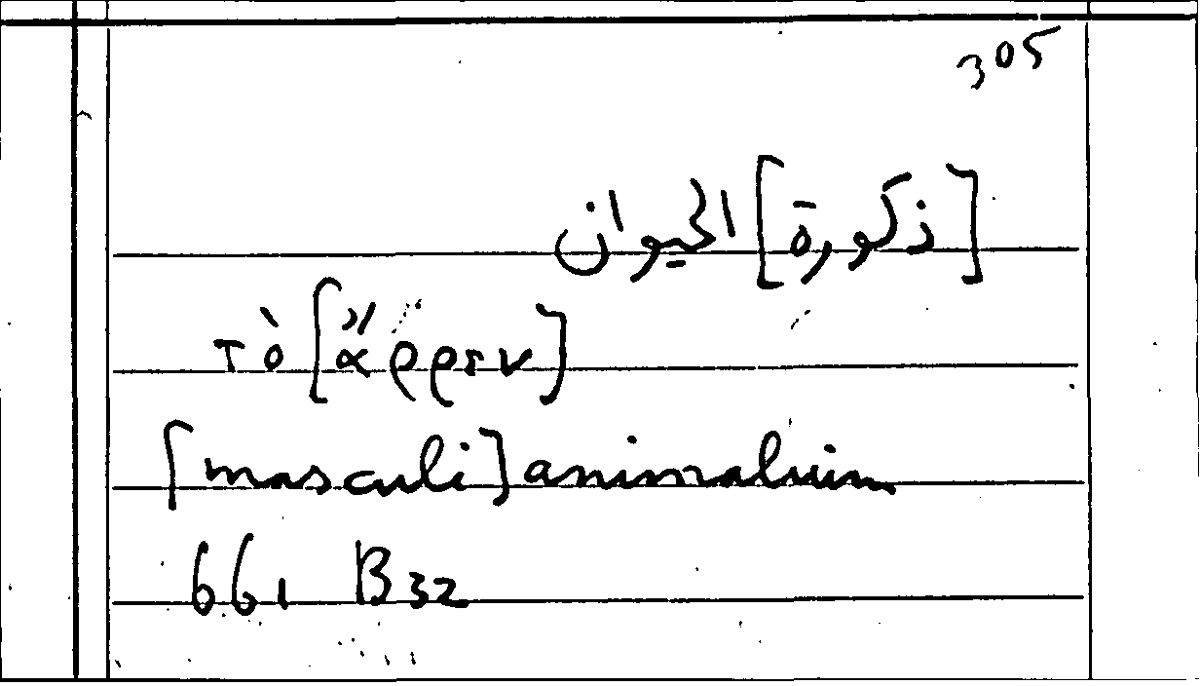 305
[ذكورة] الحيوان
τὸ [ἄρρεν]
[masculi] animalium
661 B32